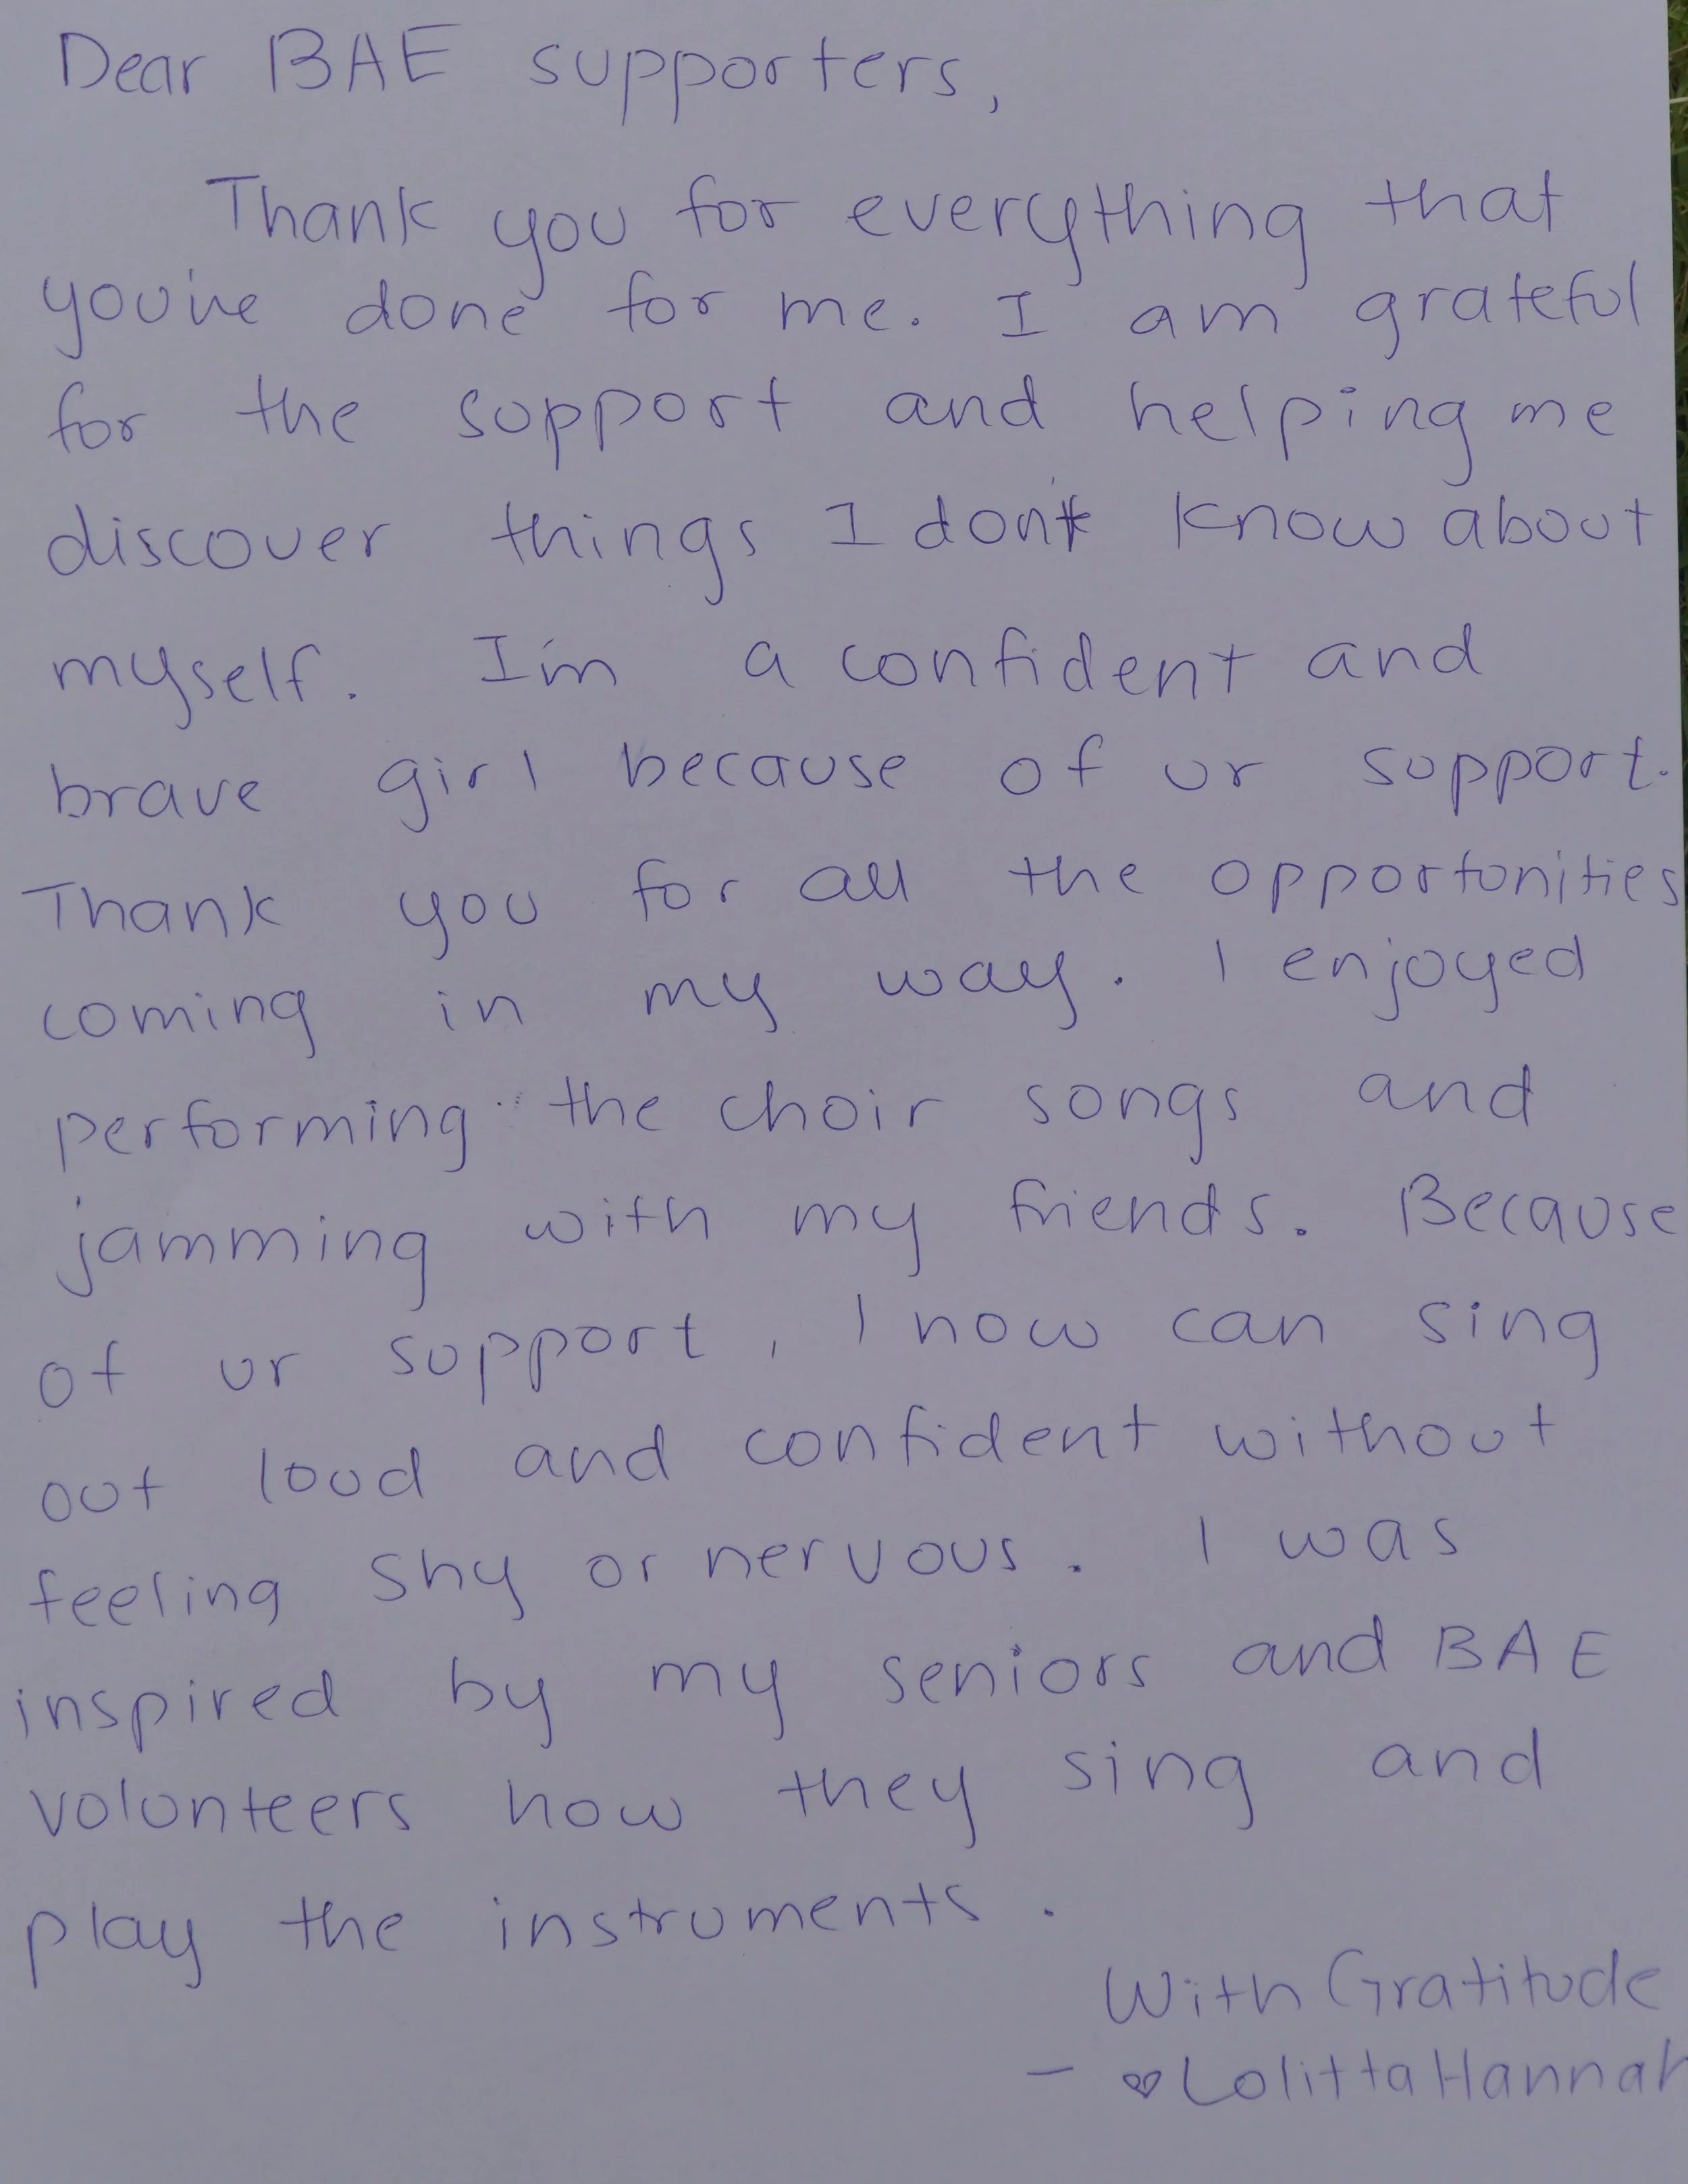 Dear BAE supporters,
Thank you for everything that
you've done for me. I am grateful
for the support and helping me
discover things I don't know about
myself. I'm a confident and
brave girl because of ur support.
Thank you for all the opportunities
coming in my way. I enjoyed
performing the choir songs and
jamming with my friends. Because
of ur support, I now can sing
out loud and confident without
feeling shy or nervous. I was
inspired by my seniors and BAE
volunteers how they sing and
play the instruments.
With Gratitude
- ♡Lolitta Hannah